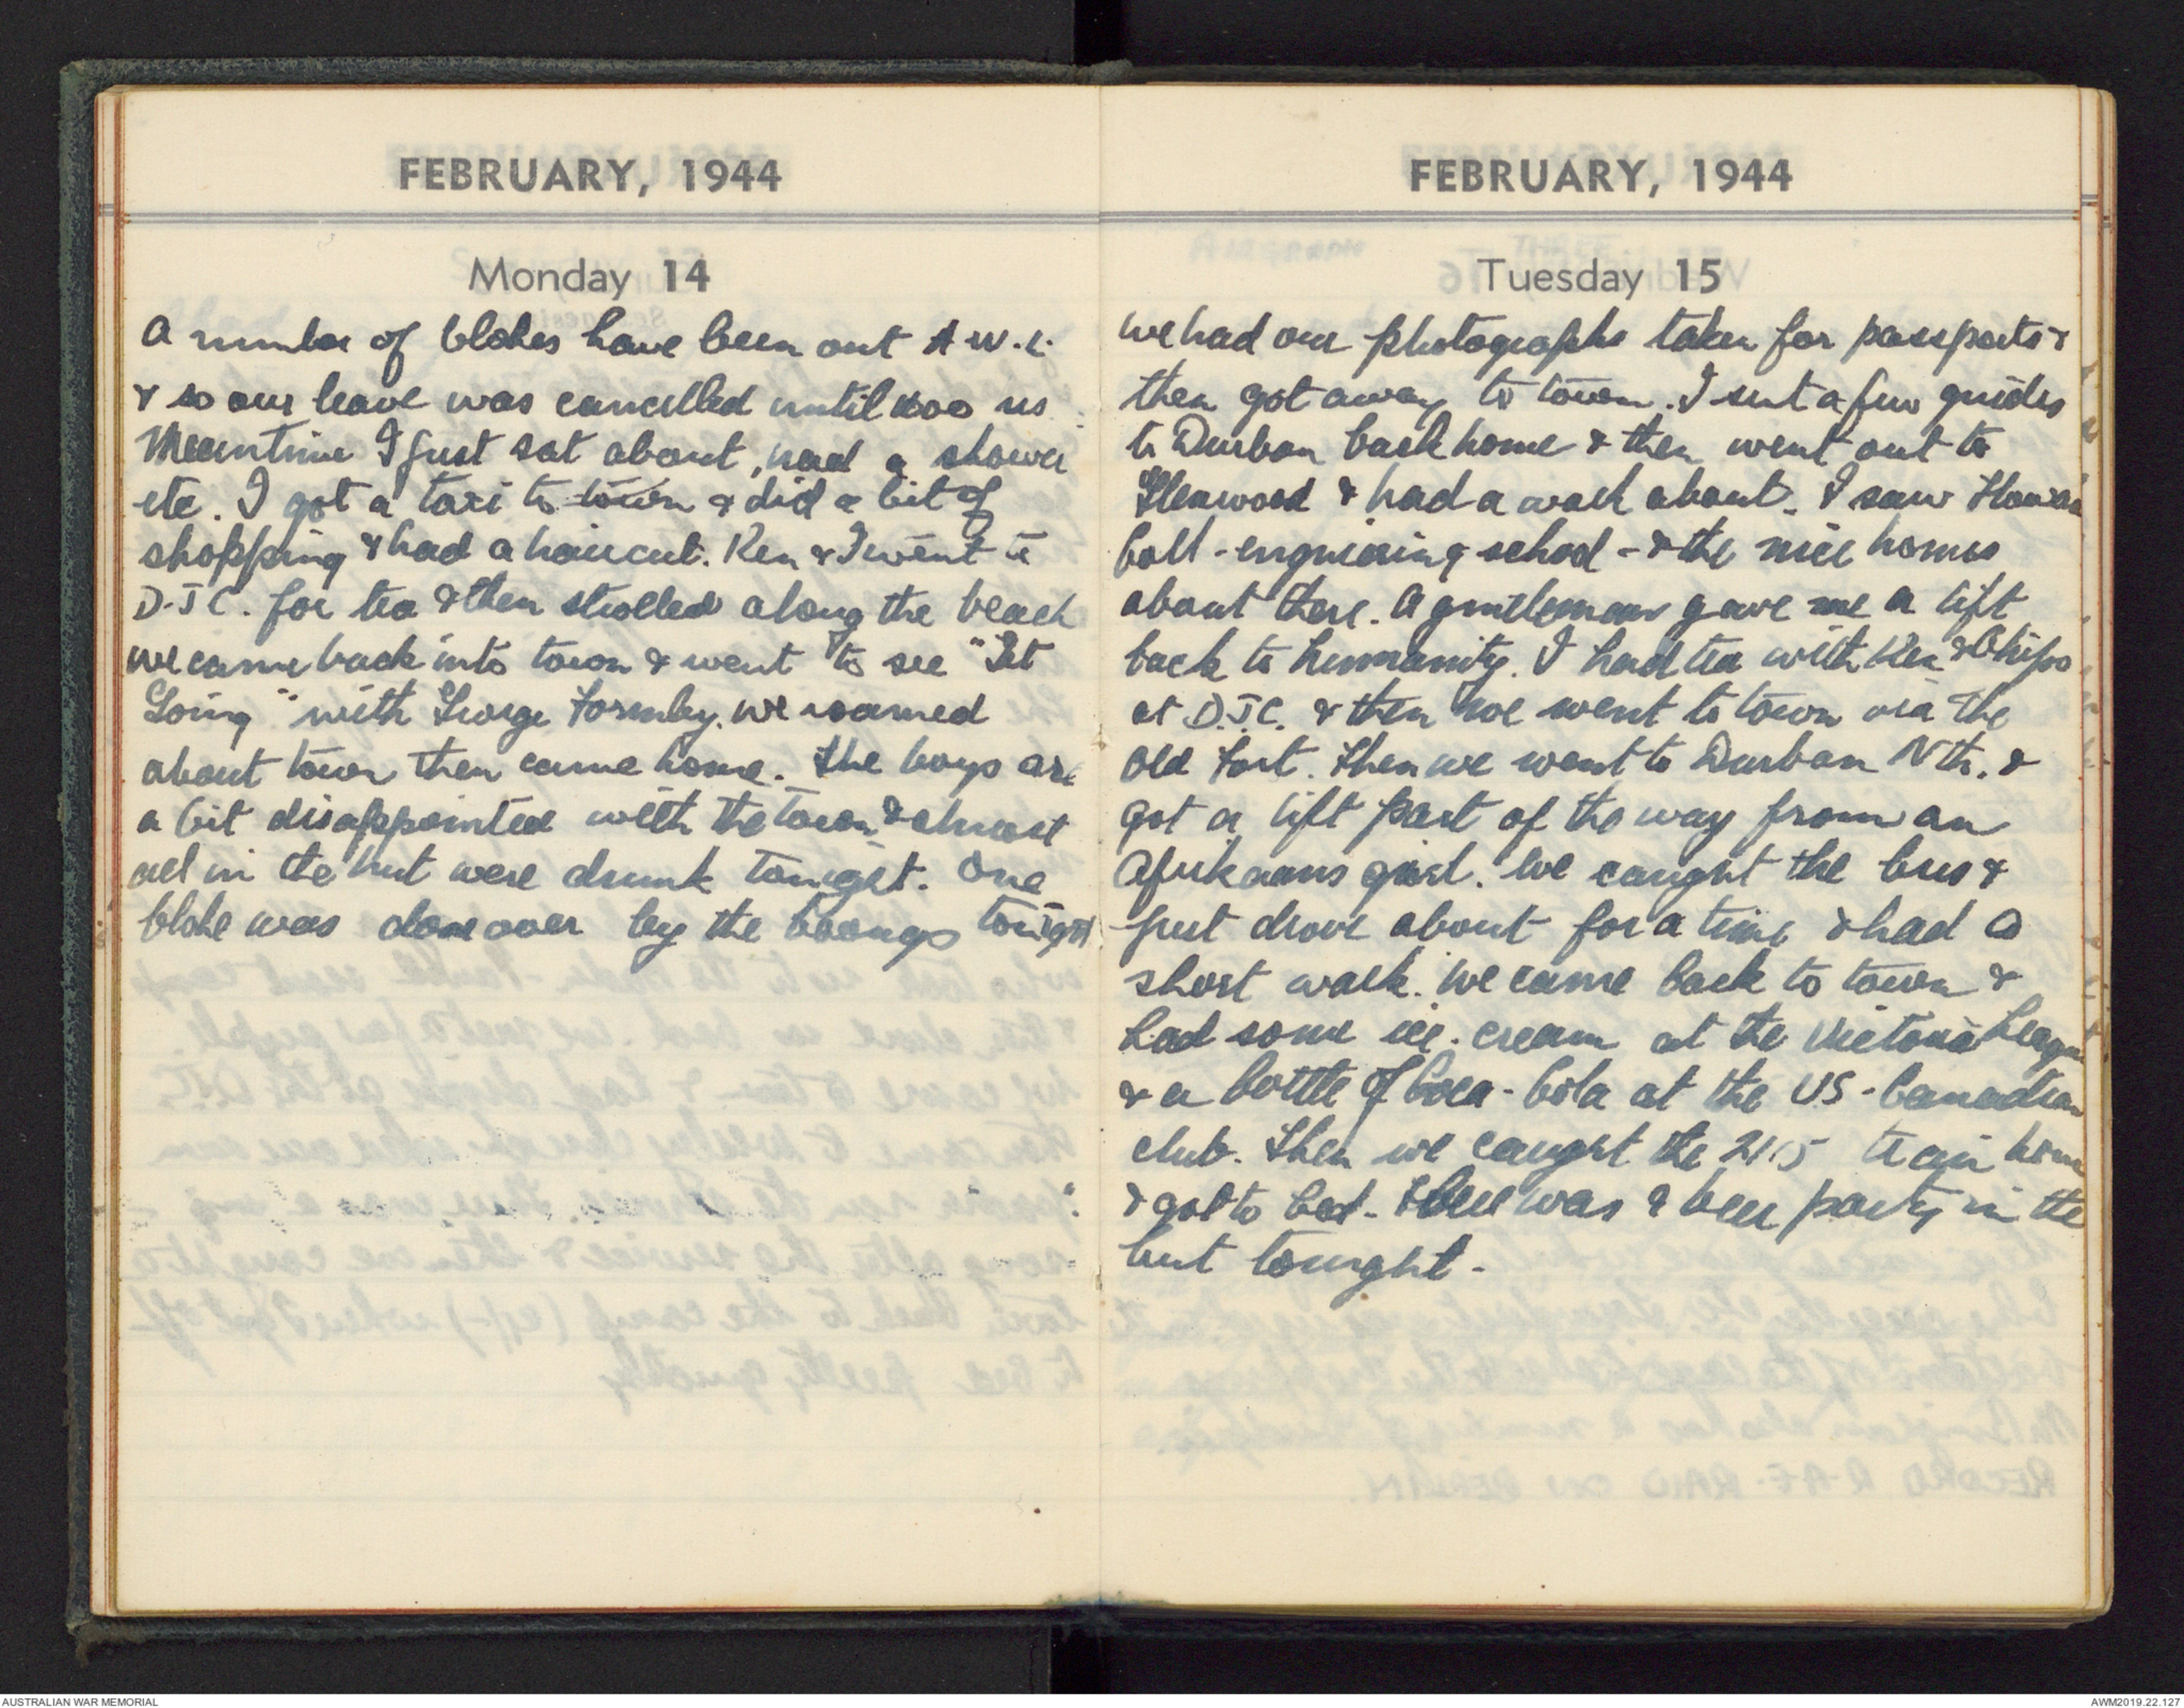 FEBRUARY, 1944
Monday 14
A number of blokes have been out A.W.L.
& so our leave was cancelled until 1600 us
Meantime I just sat about, had a shower
etc. I got a taxi to town & did a bit of
shopping & had a haircut. Ken & I went to
D.J.C. for tea & then strolled along the beach
we came back into town & went to see "Get
Going" with George Formby. We roamed
about town then came home. The boys are
a bit disappointed with the town & almost
all in the hut were drunk tonight. One
bloke was done over by the boongs tonight
FEBRUARY, 1944
Tuesday 15
We had our photographs taken for passports &
then got away to town. I sent a few guides
to Durban back home & then went out to
Glenwood & had a walk about. I saw Howard
Coll - engineering school - & the nice homes
about there. A gentleman gave me a lift
back to humanity. I had tea with Ken & Chips
at D.J.C. & then we went to town via the
Old Fort. Then we went to Durban Nth. &
got a lift part of the way from an
Afrikaans girl. We caught the bus &
just drove about for a time & had a
short walk. We came back to town &
had some ice-cream at the Victoria League
& a bottle of Coca-Cola at the US-Canadian
club. Then we caught the 2115 train home
& got to bed. There was a beer party in the
hut tonight.
AUSTRALIAN WAR MEMORIAL
AWM2019.22.127